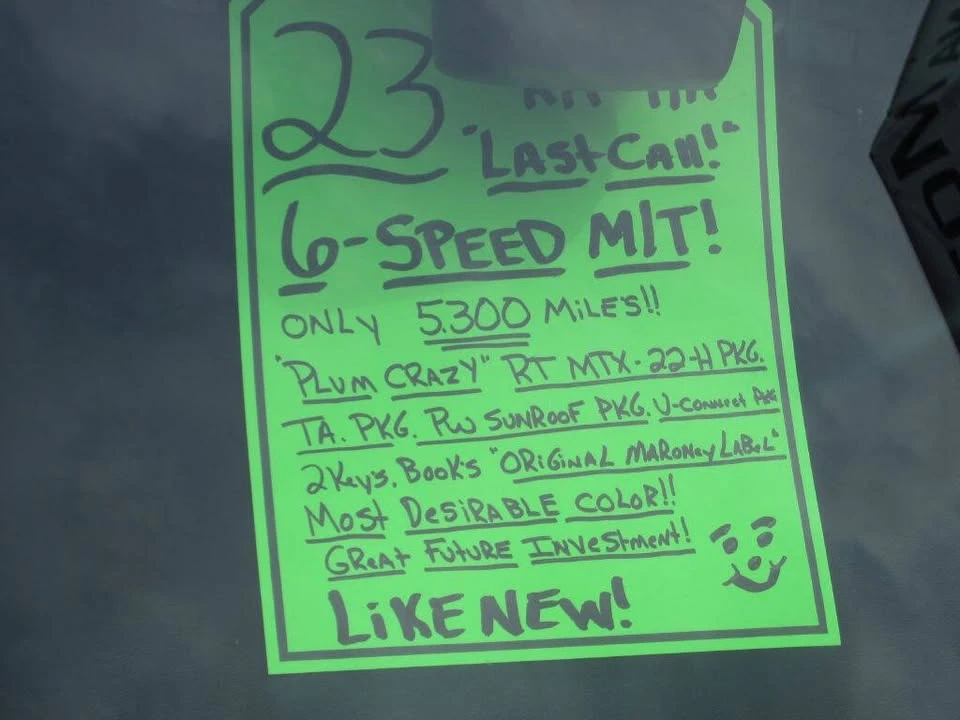 23
"LAST CALL!"
6-SPEED M/T!
ONLY 5.300 MILE'S!!
"PLUM CRAZY" RT MTX-22-H PKG.
TA. PKG. PW SUNROOF PKG. U-CONNECT PKG
2 KEY'S. BOOK'S "ORIGINAL MARONEY LABEL"
MOST DESIRABLE COLOR!!
GREAT FUTURE INVESTMENT!
LIKE NEW!